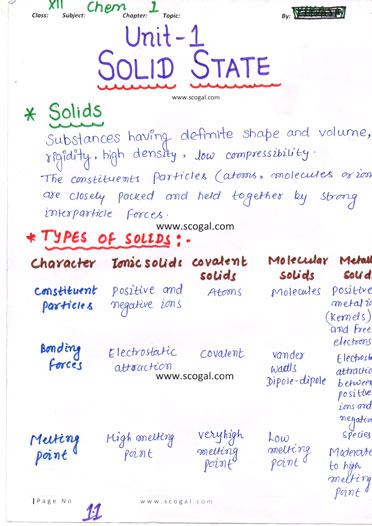 Class: XII Subject: Chem Chapter: 1 Topic: By:
Unit-1
SOLID STATE
www.scogal.com
* Solids
Substances having definite shape and volume,
rigidity, high density, low compressibility.
The constituents Particles (atoms, molecules or ion
are closely packed and held together by strong
interparticle Forces.
www.scogal.com
* TYPES OF SOLIDS:-
Character Ionic solids Covalent solids Molecular solids Metall solid
Constituent Particles Positive and negative ions Atoms Molecules Positive metal io (Kernels) and free electrons
Bonding Forces Electrostatic attraction Covalent vander walls Dipole-dipole Electrosta attractio between positive ions and negative species
www.scogal.com
Melting point High melting point very high melting point Low melting point Moderate to high melting point
|Page No www.scogal.com
11